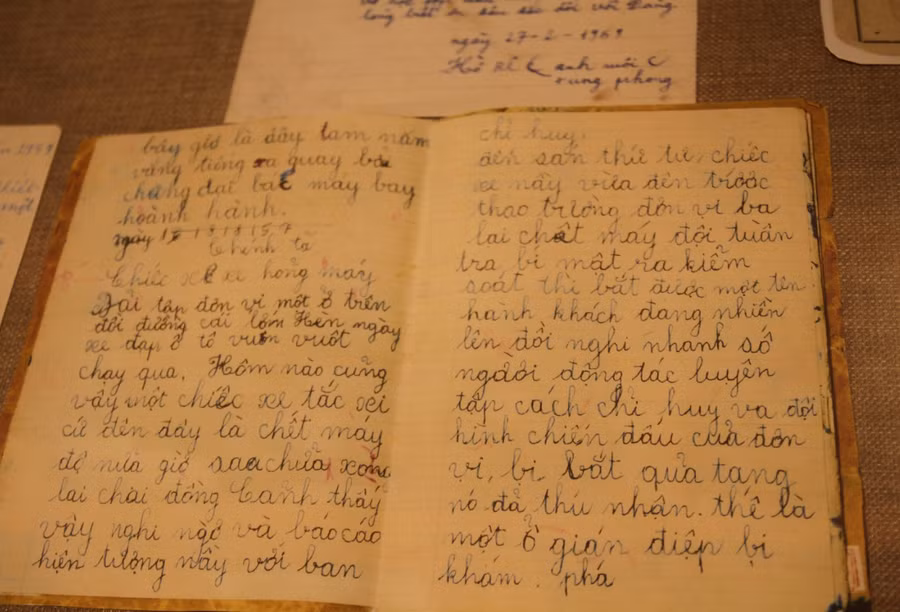 lòng biết ơn sâu sắc đối với Đảng
ngày 27-2-1969
Hồ
anh nuôi
xung phong
bây giờ là đây tam năm
vang tiếng ra quay
chẳng đại bác máy bay
hoành hành.
ngày
Chính tả
Chiếc xe hỏng máy
tập đơn vị một ở trên
đồi đường cái lớm Hên ngày
xe đạp ô tô vuến vuốt
chạy qua. Hôm nào cũng
vậy một chiếc xe tắc xi
cứ đên đây là chết máy
độ nưả giờ sau chửa xong
lai chài đồng Canh thấy
vậy nghi ngờ và báo cáo
hiện tượng nầy với ban
chỉ huy.
đến sán thứ tư chiếc
xe nầy vừa đến trước
thao trường đơn vị ba
lai chết máy đội tuần
tra bí mật ra kiểm
soát thì bắt được một tên
hành khách đang nhiên
lên đồi nghi nhanh số
người động tác luyện
tập cách chỉ huy va đội
hình chiến đấu của đơn
vị, bị bắt quả tang
nó đả thú nhận. thế là
một ổ gián điệp bị
khám. phá